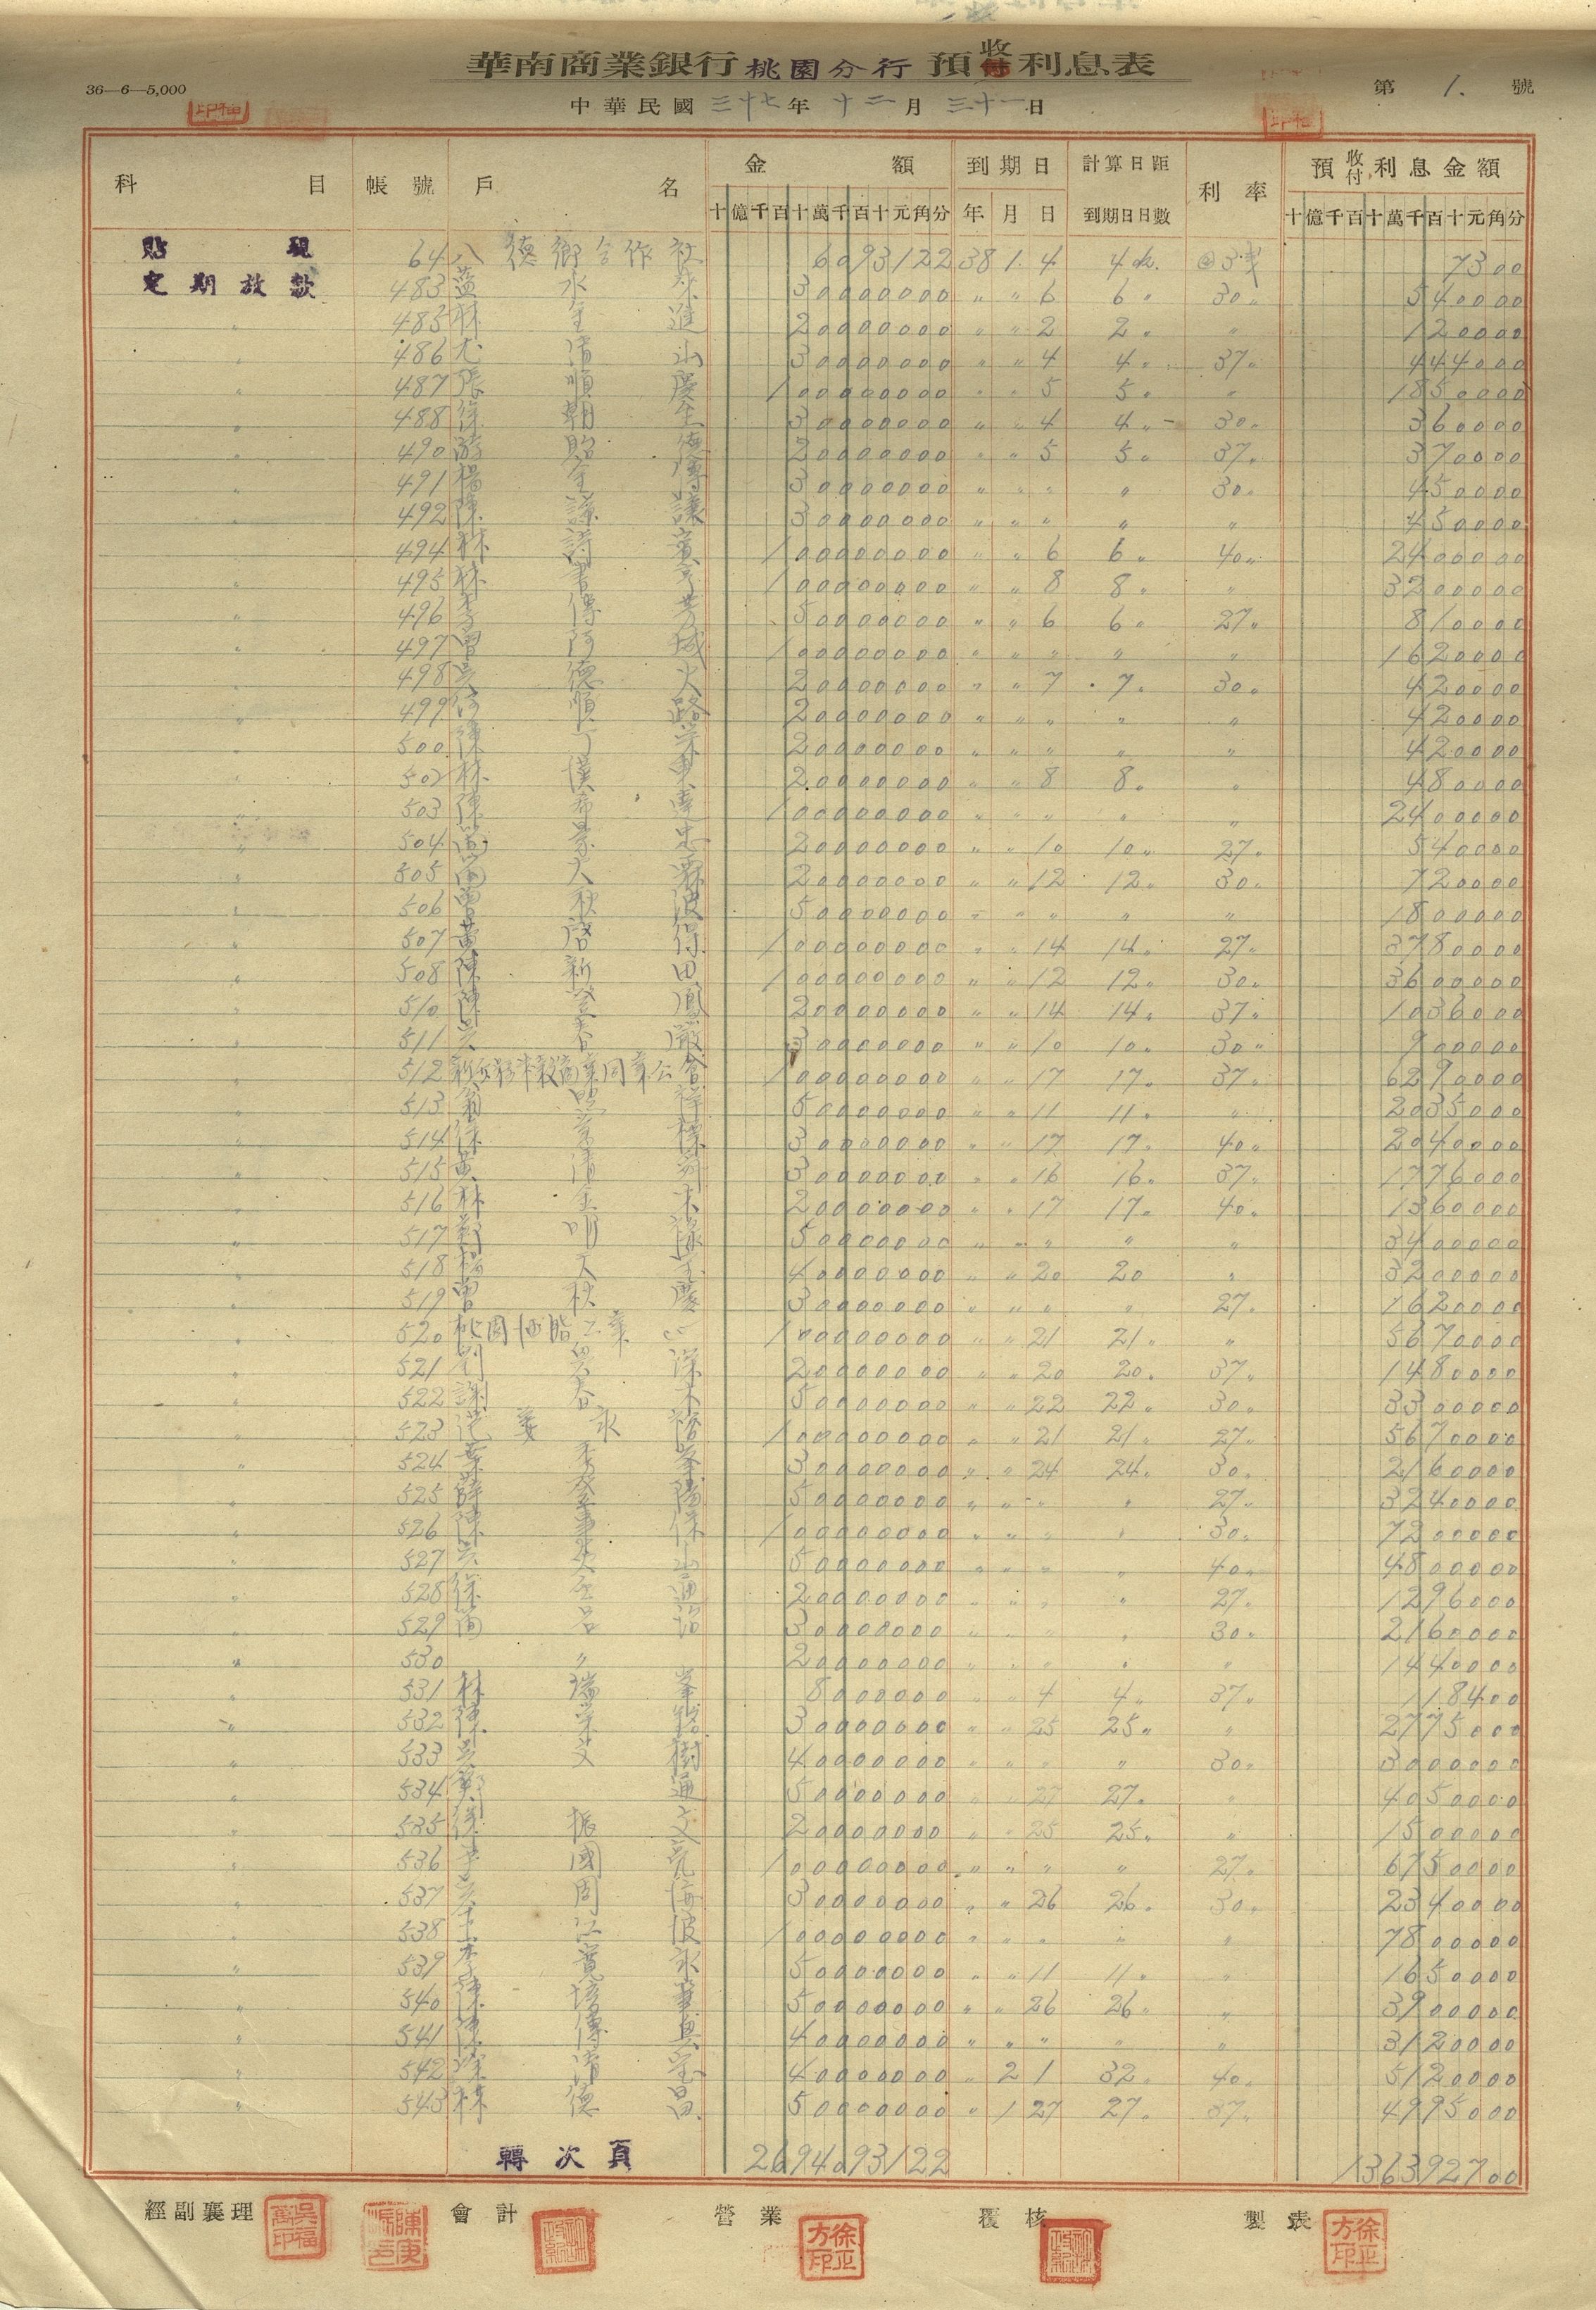 華南商業銀行桃園分行預收利息表
36—6—5,000
中華民國三十七年十二月三十一日
第 1. 號
科目 帳號 戶名 金額 到期日 計算日距到期日日數 利率 預收付利息金額
十億千百十萬千百十元角分 年 月 日 十億千百十萬千百十元角分
貼現 64 八德鄉合作社 6093122 38 1 4 4 7300
定期放款 483 水 30000000 〃 〃 6 6〃 30〃 540000
〃 485 林金進 20000000 〃 〃 2 2〃 〃 120000
〃 486 尤清山 30000000 〃 〃 4 4〃 37〃 444000
〃 487 張順慶 100000000 〃 〃 5 5〃 〃 1850000
〃 488 徐朝全 30000000 〃 〃 4 4〃 30〃 360000
〃 490 游貽德 20000000 〃 〃 5 5〃 37〃 370000
〃 491 楊金傳 30000000 〃 〃 〃 〃 30〃 450000
〃 492 陳讓 30000000 〃 〃 〃 〃 〃 450000
〃 494 林詩賓 100000000 〃 〃 6 6〃 40〃 2400000
〃 495 林書 100000000 〃 〃 8 8〃 〃 3200000
〃 496 李傳芳 50000000 〃 〃 6 6〃 27〃 810000
〃 497 曾阿城 100000000 〃 〃 〃 〃 〃 1620000
〃 498 吳德火 20000000 〃 〃 7 7〃 30〃 420000
〃 499 何順路 20000000 〃 〃 〃 〃 〃 420000
〃 500 陳 20000000 〃 〃 〃 〃 〃 420000
〃 502 林漢東 20000000 〃 〃 8 8〃 〃 480000
〃 503 陳希 100000000 〃 〃 〃 〃 〃 2400000
〃 504 黃景忠 20000000 〃 〃 10 10〃 27〃 540000
〃 505 簡大 20000000 〃 〃 12 12〃 30〃 720000
〃 506 曾秋波 50000000 〃 〃 〃 〃 〃 1800000
〃 507 黃啓得 100000000 〃 〃 14 14〃 27〃 3780000
〃 508 陳新田 100000000 〃 〃 12 12〃 30〃 3600000
〃 510 陳登鳳 20000000 〃 〃 14 14〃 37〃 1036000
〃 511 吳春嚴 30000000 〃 〃 10 10〃 30〃 900000
〃 512 新竹縣米穀商業同業公會 100000000 〃 〃 17 17〃 37〃 6290000
〃 513 翁祥 50000000 〃 〃 11 11〃 〃 2035000
〃 514 徐 30000000 〃 〃 17 17〃 40〃 2040000
〃 515 黃清 30000000 〃 〃 16 16〃 37〃 1776000
〃 516 林金木 20000000 〃 〃 17 17〃 40〃 1360000
〃 517 鄭明 50000000 〃 〃 〃 〃 〃 3400000
〃 518 楊天 40000000 〃 〃 20 20 〃 3200000
〃 519 曾秋慶 30000000 〃 〃 〃 〃 27〃 1620000
〃 520 桃園油脂工業 100000000 〃 〃 21 21〃 〃 5670000
〃 521 劉深 20000000 〃 〃 20 20〃 37〃 1480000
〃 522 謝春木 50000000 〃 〃 22 22〃 30〃 3300000
〃 523 范姜永 100000000 〃 〃 21 21〃 27〃 5670000
〃 524 葉秀峯 30000000 〃 〃 24 24〃 30〃 2160000
〃 525 薛陽 50000000 〃 〃 〃 〃 27〃 3240000
〃 526 陳保 100000000 〃 〃 〃 〃 30〃 7200000
〃 527 吳山 50000000 〃 〃 〃 〃 40〃 4800000
〃 528 徐金通 20000000 〃 〃 〃 〃 27〃 1296000
〃 529 簡石治 30000000 〃 〃 〃 〃 30〃 2160000
〃 530 〃 20000000 〃 〃 〃 〃 〃 1440000
〃 531 林瑞峯 8000000 〃 〃 4 4〃 37〃 118400
〃 532 陳榮 30000000 〃 〃 25 25〃 〃 2775000
〃 533 吳文樹 40000000 〃 〃 〃 〃 30〃 3000000
〃 534 鄭通 50000000 〃 〃 27 27〃 〃 4050000
〃 535 徐振文 20000000 〃 〃 25 25〃 〃 1500000
〃 536 李國 100000000 〃 〃 〃 〃 27〃 6750000
〃 537 吳周海 30000000 〃 〃 26 26〃 30〃 2340000
〃 538 江波 100000000 〃 〃 〃 〃 〃 7800000
〃 539 李寬永 50000000 〃 〃 11 11〃 〃 1650000
〃 540 陳 50000000 〃 〃 26 26〃 〃 3900000
〃 541 陳傳 40000000 〃 〃 〃 〃 〃 3120000
〃 542 清 40000000 〃 2 1 32〃 40〃 5120000
〃 543 林德昌 50000000 〃 1 27 27〃 37〃 4995000
轉次頁 2694093122 136392700
經副襄理 會計 營業 覆核 製表
徐正方印 徐正方印